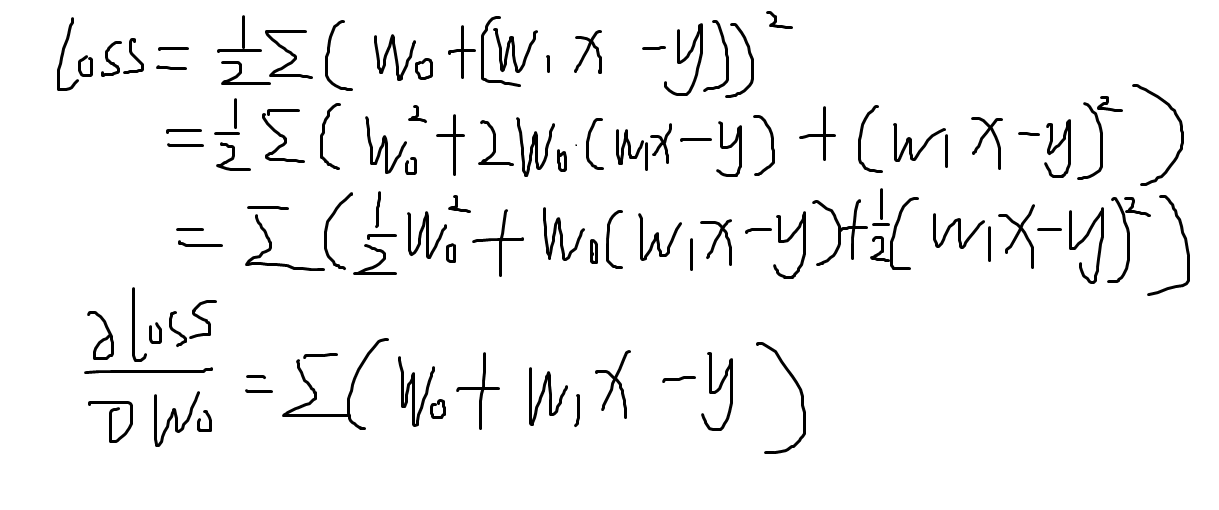 Loss = ½ Σ( W₀ + (W₁ x - y))²
= ½ Σ( W₀² + 2W₀·(W₁x - y) + (W₁ x - y)² )
= Σ( ½ W₀² + W₀(W₁x - y) + ½(W₁x - y)² )
∂Loss/∂W₀ = Σ( W₀ + W₁x - y )